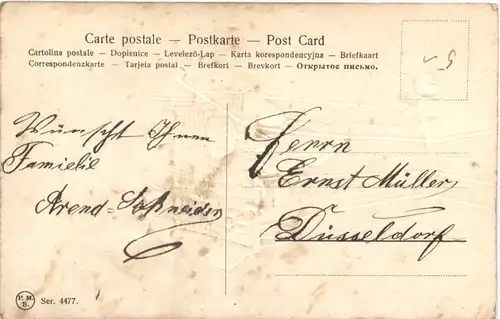 Carte postale — Postkarte — Post Card
Cartolina postale — Dopisnice — Levelező-Lap — Karta korespondencyjna — Briefkaart
Correspondenzkarte — Tarjeta postal — Brefkort — Brevkort — Открытое письмо.
Wünscht Ihnen
Familie
Arend-Schneider
Herrn
Ernst Müller,
Düsseldorf
P. M. B.
Ser. 4477.